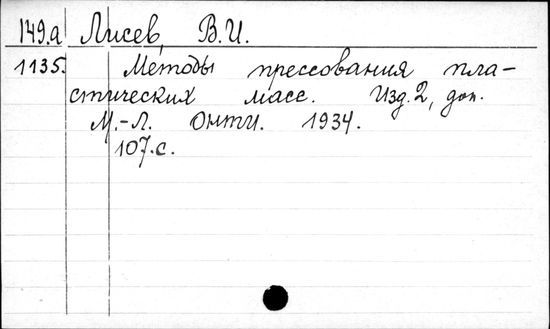 149.а Лисев, В.И.
1135. Методы прессования пла-
стических масс. Изд. 2, доп.
М.-Л. ОНТИ. 1934.
107.с.